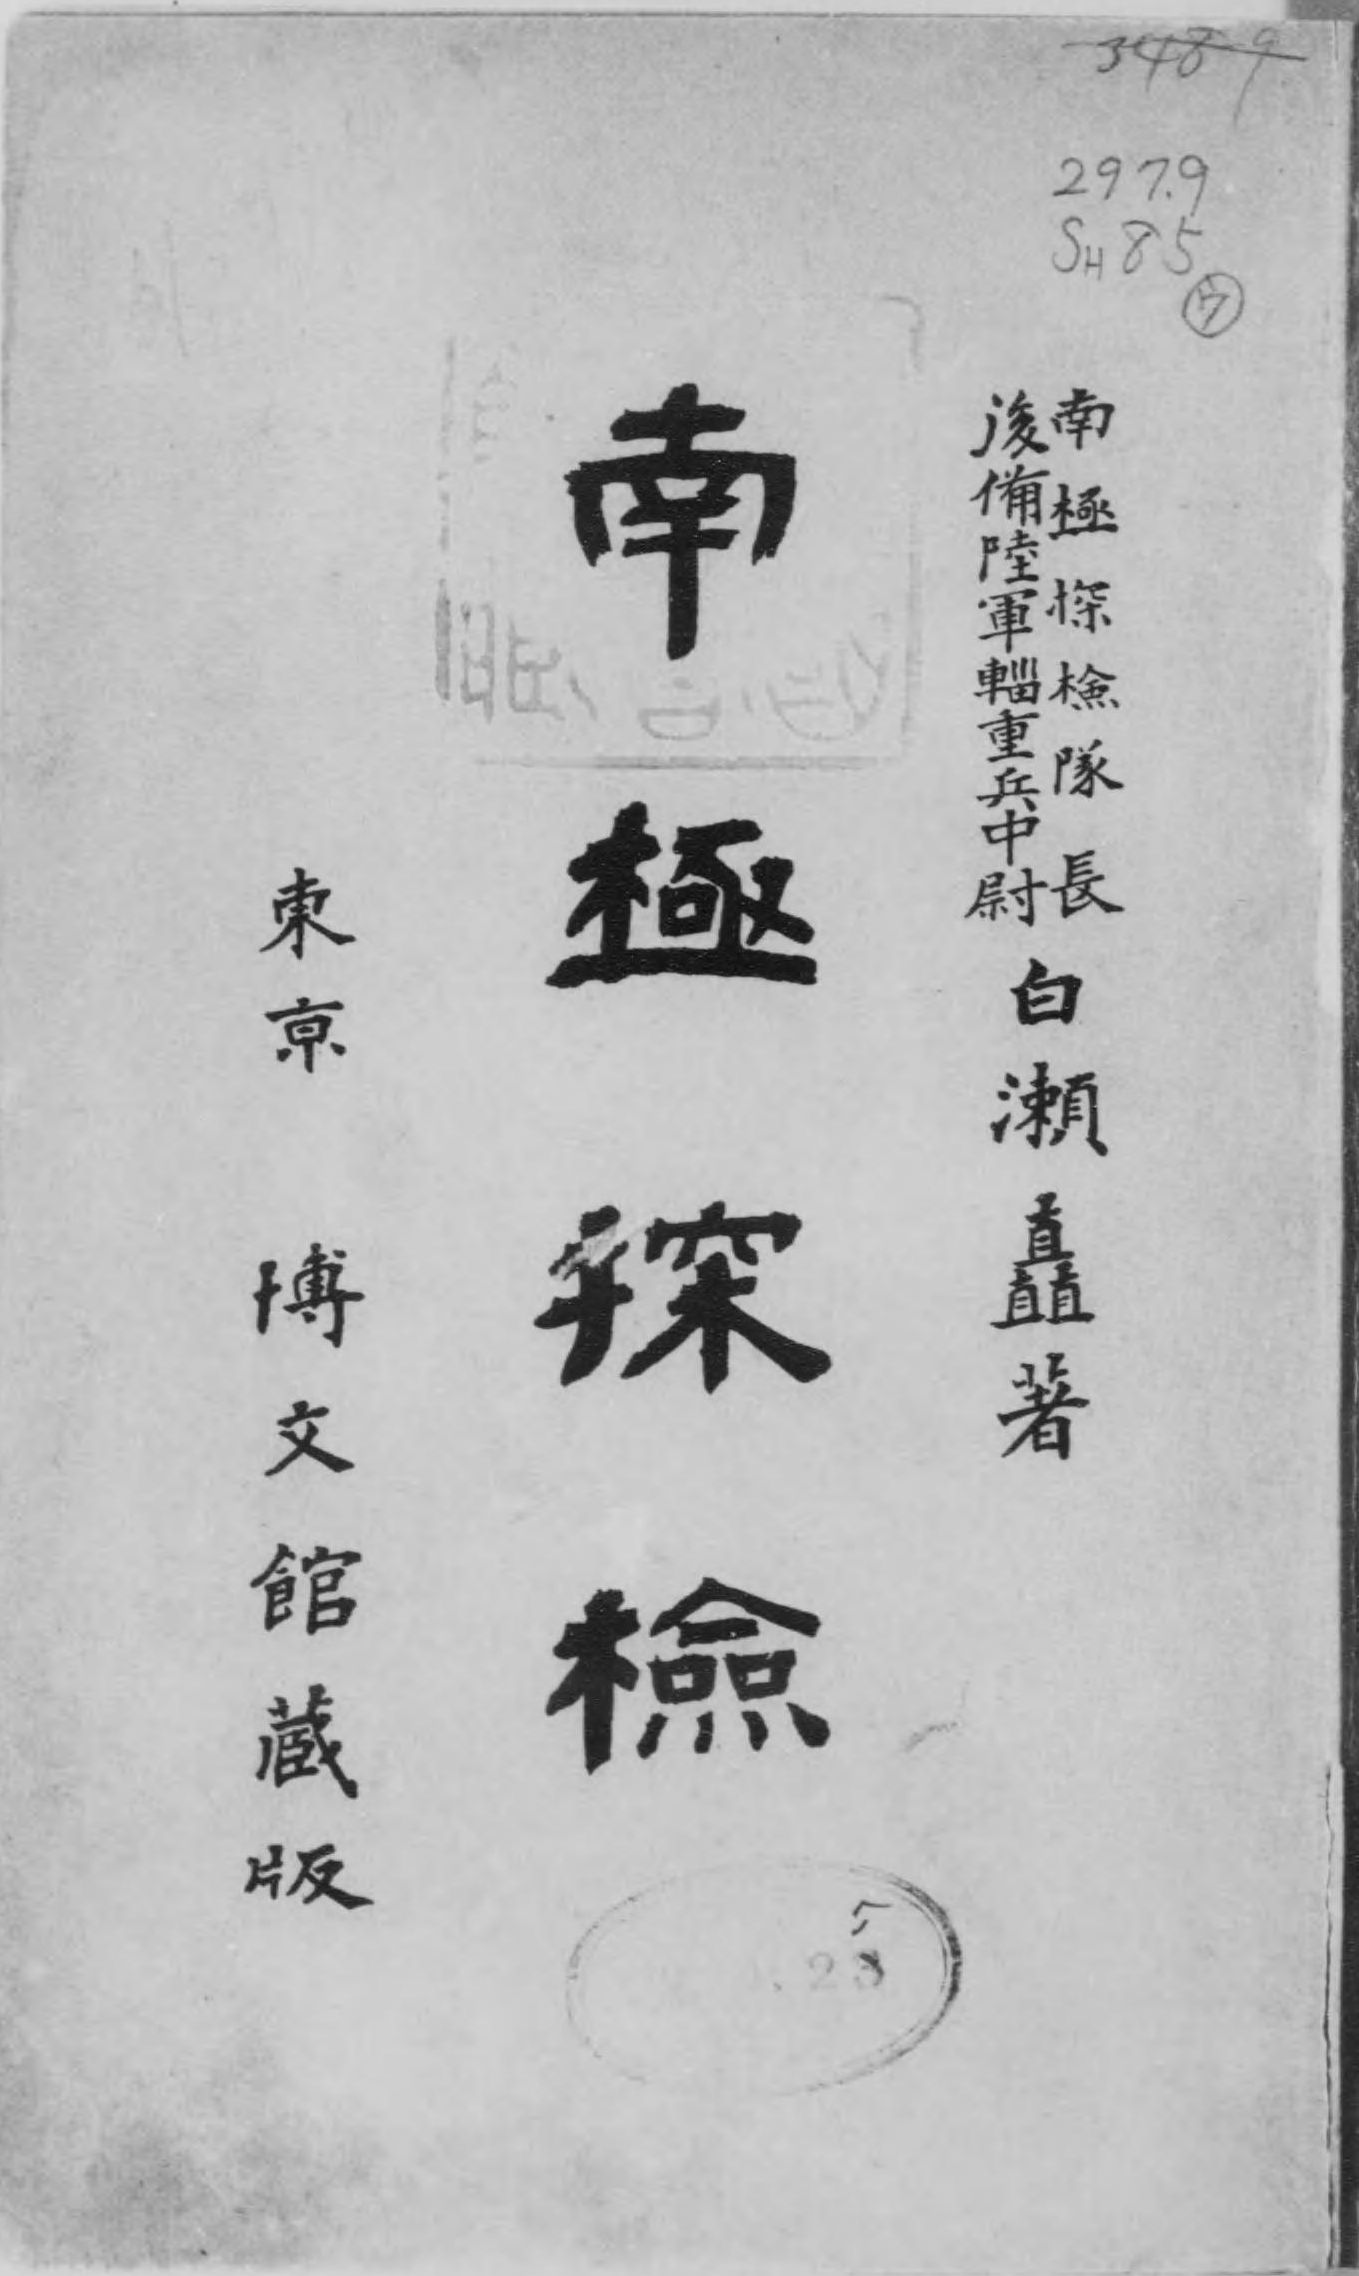 3489
297.9
SH85
ウ
南極探檢隊長
後備陸軍輜重兵中尉
白瀨矗著
南極探檢
東京 博文館藏版